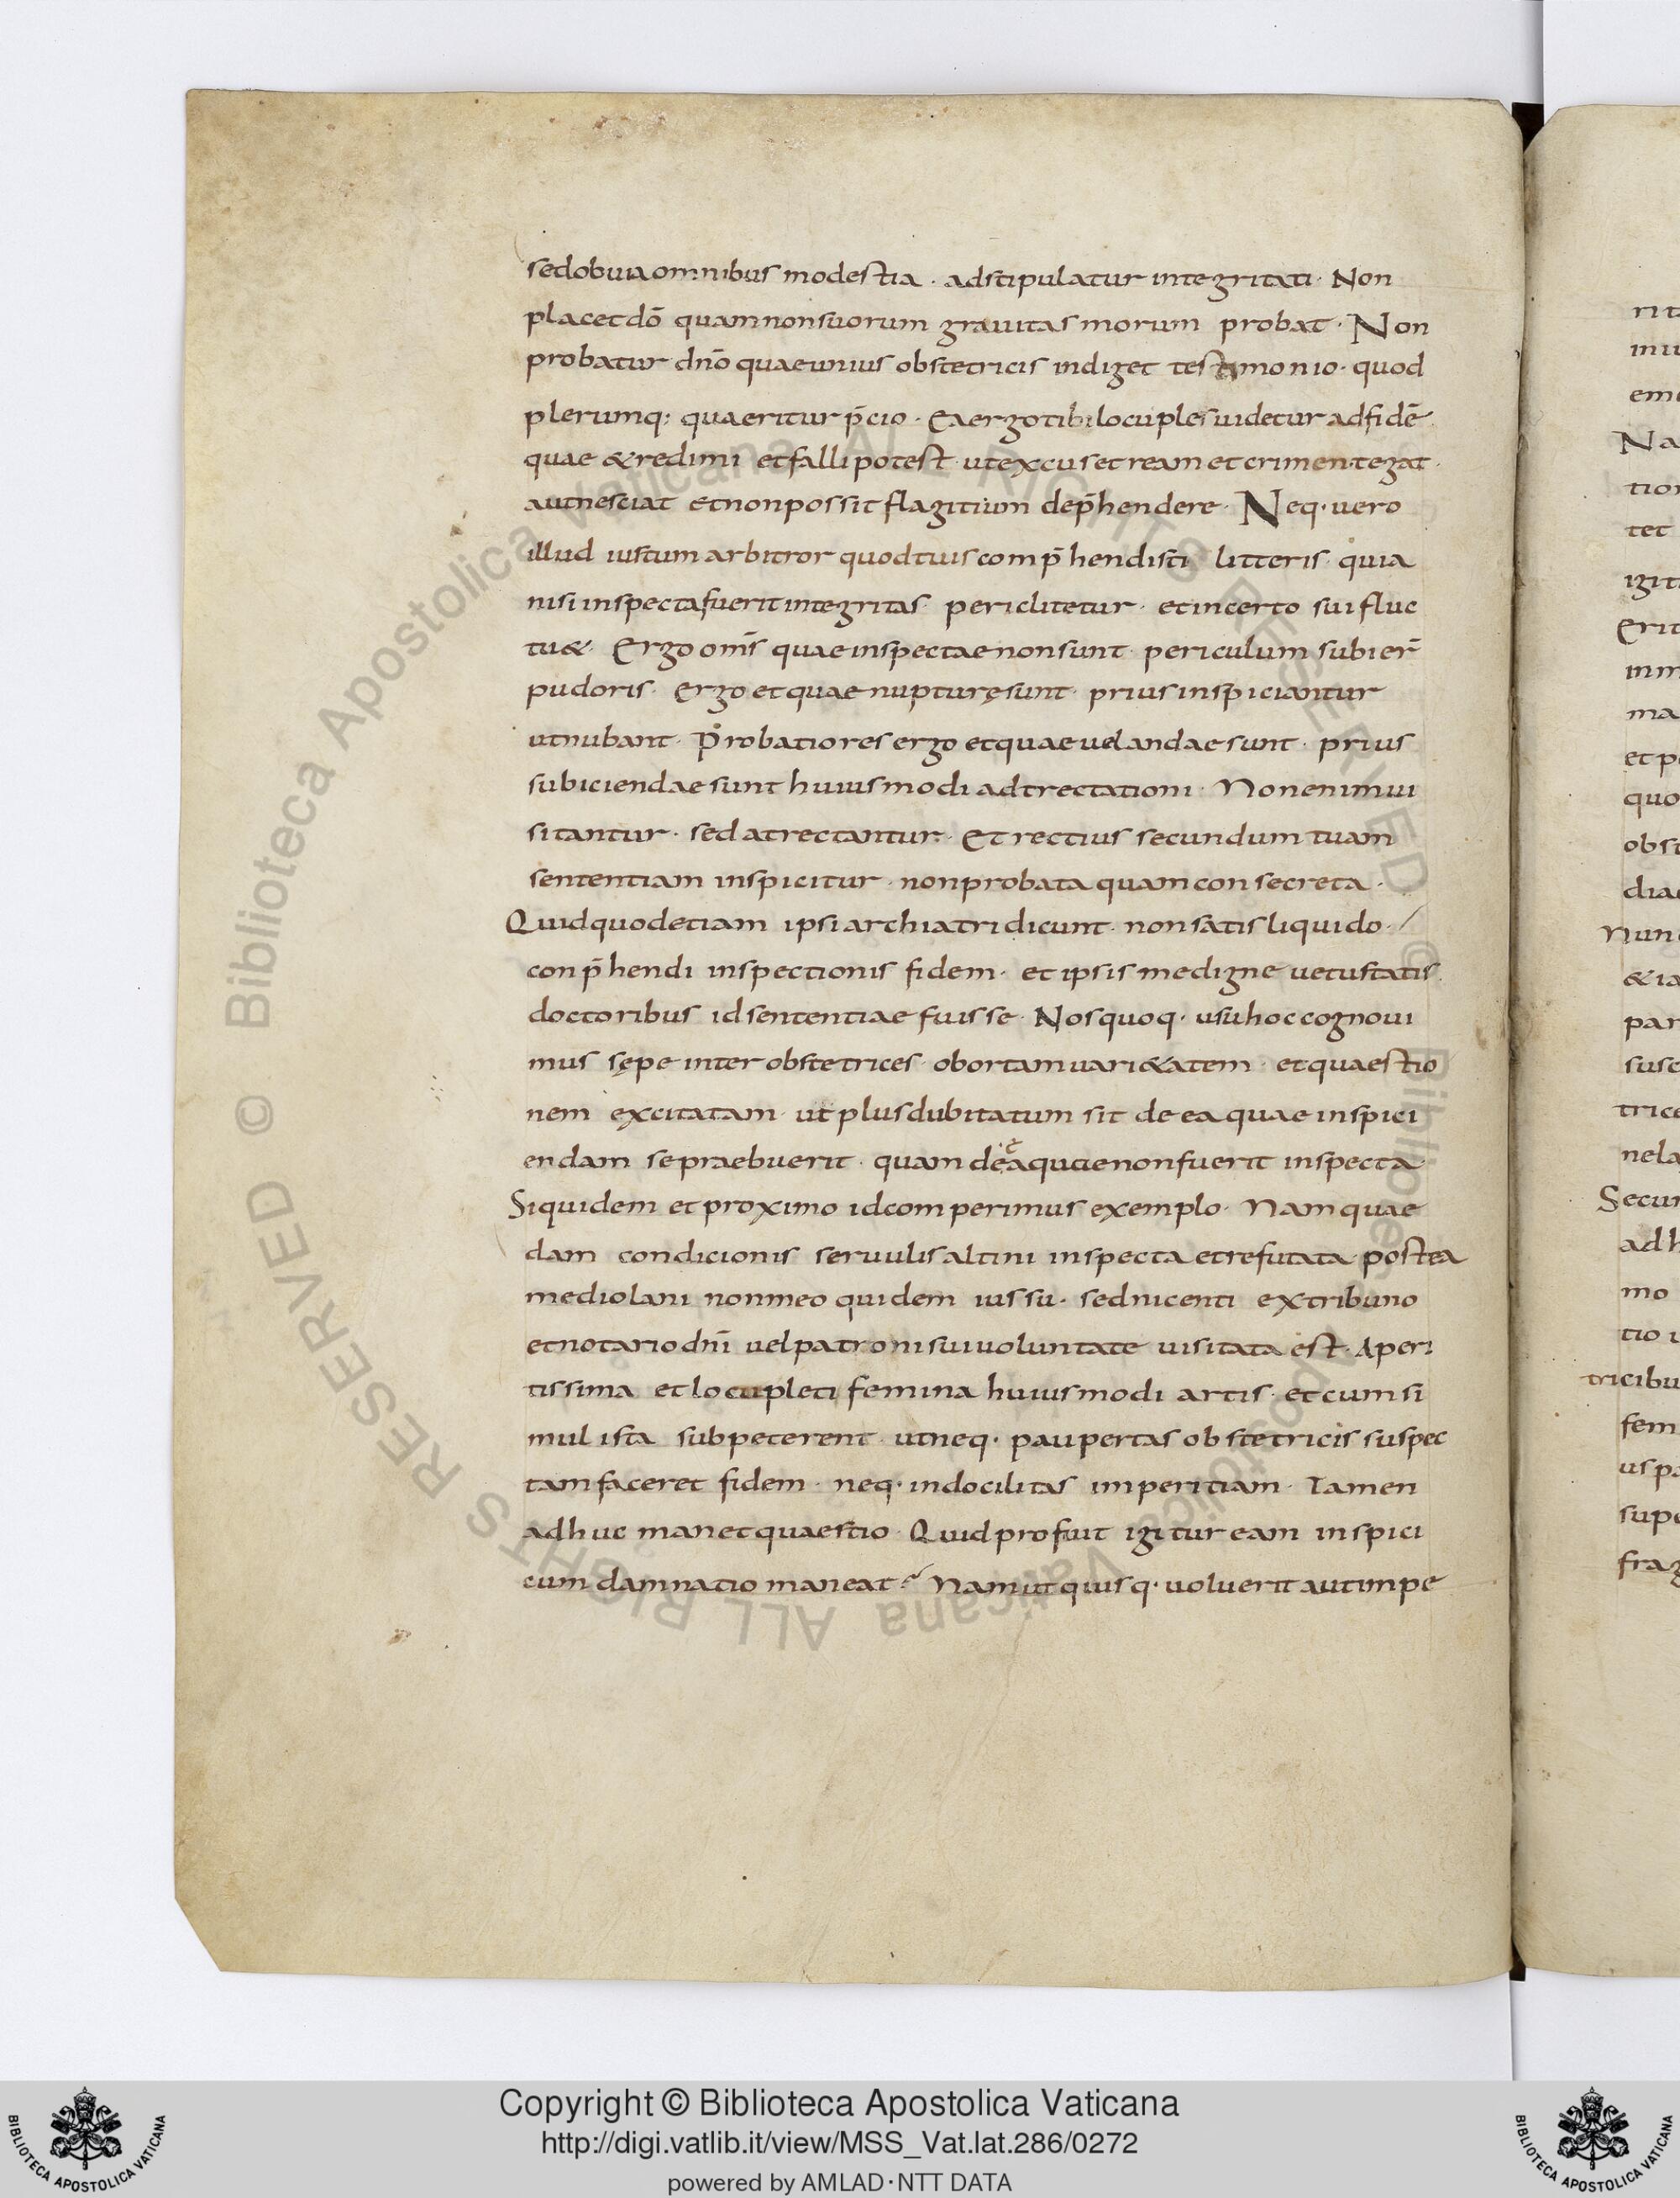 sed obvia omnibus modestia · adstipulatur integritati · Non
placet dō quam non suorum gravitas morum probat · Non
probatur dnō quae unius obstetricis indiget testimonio · quod
plerumq; quaeritur p̄cio · Ea ergo tibi locuples uidetur ad fidē
quae & redimi et falli potest · ut excuset ream et crimen tegat ·
aut nesciat et non possit flagitium dep̄hendere · Neq· uero
illud iustum arbitror quod tuis comp̄hendisti litteris · quia
nisi inspecta fuerit integritas · periclitetur · et incerto sui fluc
tu& · Ergo om̄s quae inspectae non sunt · periculum subier̄
pudoris · Ergo et quae nupturę sunt · prius inspiciantur
ut nubant · Probatiores ergo et quae uelandae sunt · prius
subiciendae sunt huiusmodi adtrectationi · Non enim ui
sitantur · sed atrectantur · Et rectius secundum tuam
sententiam inspicitur · non probata quam consecreta ·
Quid quod etiam ipsi archiatri dicunt · non satis liquido ·
conp̄hendi inspectionis fidem · et ipsis medigne uetustatis
doctoribus id sententiae fuisse · Nos quoq· usu hoc cognoui
mus sępe inter obstetrices obortam uari&atem · et quaestio
nem excitatam · ut plus dubitatum sit de ea quae inspici
endam se praebuerit · quam de ea quae non fuerit inspecta ·
Siquidem et proximo id comperimus exemplo · Nam quae
dam condicionis seruulis altini inspecta et refutata · postea
mediolani non meo quidem iussu · sed nicenti ex tribuno
et notario dn̄i uel patroni sui uoluntate uisitata est · Aperi
tissima et locupleti femina huiusmodi artis · et cum si
mul ista subpeterent · ut neq· paupertas obstetricis suspec
tam faceret fidem · neq· indocilitas imperitiam · Tamen
adhuc manet quaestio · Quid profuit igitur eam inspici
cum damnatio maneat? Nam ut quisq· uoluerit aut impe
Copyright © Biblioteca Apostolica Vaticana
http://digi.vatlib.it/view/MSS_Vat.lat.286/0272
powered by AMLAD · NTT DATA